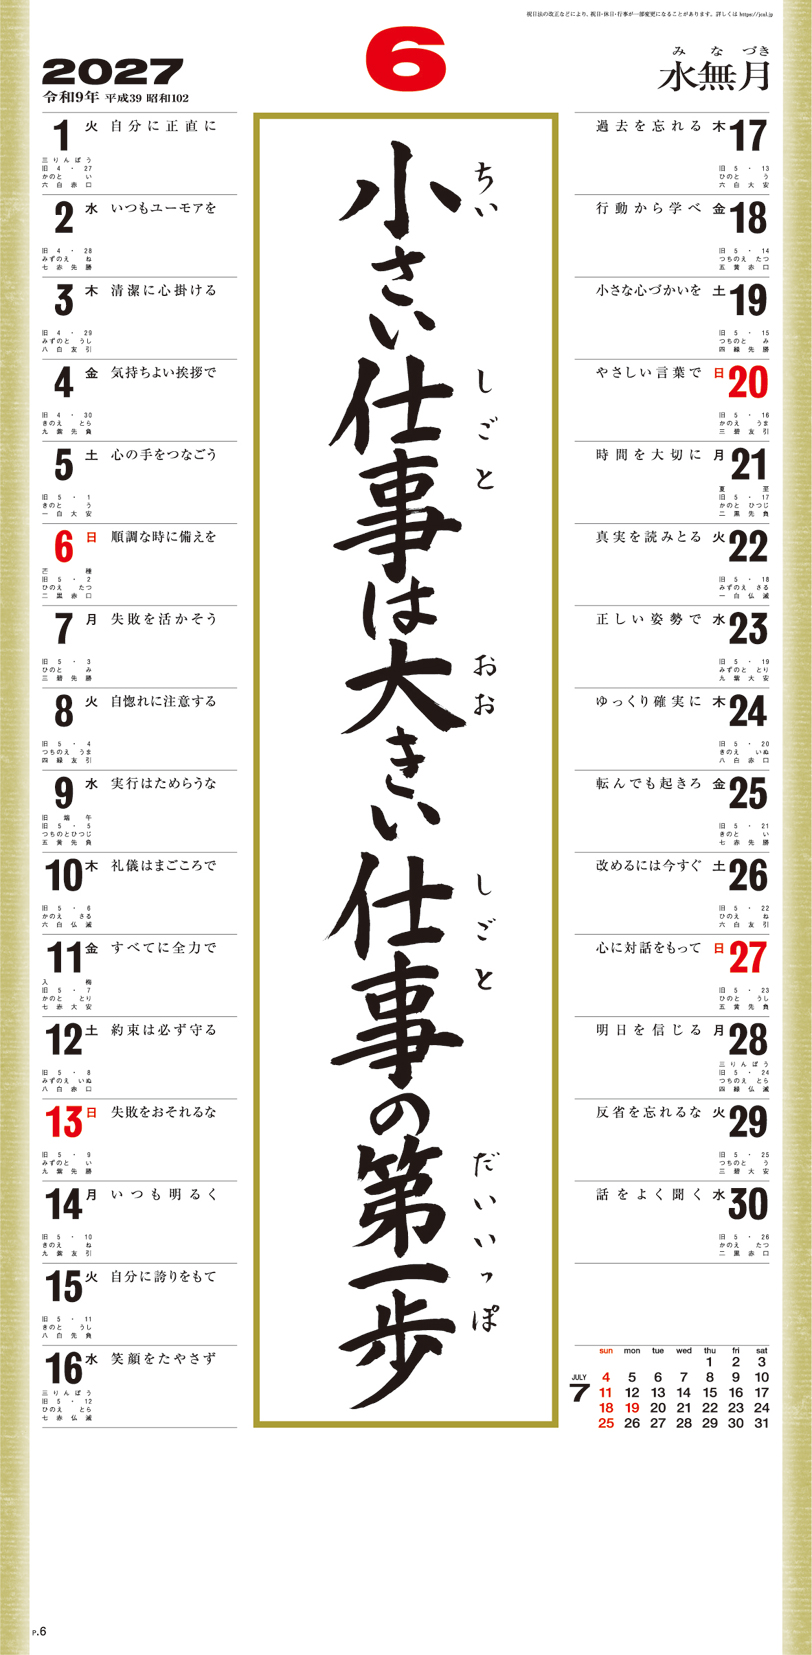 祝日法の改正などにより、祝日・休日・行事が一部変更になることがあります。詳しくは https://jcal.jp
6
2027
令和9年 平成39 昭和102
みなづき
水無月
小さい仕事は大きい仕事の第一歩
ちい
しごと
おお
しごと
だいいっぽ
1 火 自分に正直に
三りんぼう
旧4・27
かのと い
六白赤口
2 水 いつもユーモアを
旧4・28
みずのえ ね
七赤先勝
3 木 清潔に心掛ける
旧4・29
みずのと うし
八白友引
4 金 気持ちよい挨拶で
旧4・30
きのえ とら
九紫先負
5 土 心の手をつなごう
旧5・1
きのと う
一白大安
6 日 順調な時に備えを
芒種
旧5・2
ひのえ たつ
二黒赤口
7 月 失敗を活かそう
旧5・3
ひのと み
三碧先勝
8 火 自惚れに注意する
旧5・4
つちのえ うま
四緑友引
9 水 実行はためらうな
旧端午
旧5・5
つちのとひつじ
五黄先負
10 木 礼儀はまごころで
旧5・6
かのえ さる
六白仏滅
11 金 すべてに全力で
入梅
旧5・7
かのと とり
七赤大安
12 土 約束は必ず守る
旧5・8
みずのえ いぬ
八白赤口
13 日 失敗をおそれるな
旧5・9
みずのと い
九紫先勝
14 月 いつも明るく
旧5・10
きのえ ね
九紫友引
15 火 自分に誇りをもて
旧5・11
きのと うし
八白先負
16 水 笑顔をたやさず
三りんぼう
旧5・12
ひのえ とら
七赤仏滅
過去を忘れる 木 17
旧5・13
ひのと う
六白大安
行動から学べ 金 18
旧5・14
つちのえ たつ
五黄赤口
小さな心づかいを 土 19
旧5・15
つちのと み
四緑先勝
やさしい言葉で 日 20
旧5・16
かのえ うま
三碧友引
時間を大切に 月 21
夏至
旧5・17
かのと ひつじ
二黒先負
真実を読みとる 火 22
旧5・18
みずのえ さる
一白仏滅
正しい姿勢で 水 23
旧5・19
みずのと とり
九紫大安
ゆっくり確実に 木 24
旧5・20
きのえ いぬ
八白赤口
転んでも起きろ 金 25
旧5・21
きのと い
七赤先勝
改めるには今すぐ 土 26
旧5・22
ひのえ ね
六白友引
心に対話をもって 日 27
旧5・23
ひのと うし
五黄先負
明日を信じる 月 28
三りんぼう
旧5・24
つちのえ とら
四緑仏滅
反省を忘れるな 火 29
旧5・25
つちのと う
三碧大安
話をよく聞く 水 30
旧5・26
かのえ たつ
二黒赤口
JULY
7
sun mon tue wed thu fri sat
1 2 3
4 5 6 7 8 9 10
11 12 13 14 15 16 17
18 19 20 21 22 23 24
25 26 27 28 29 30 31
P.6